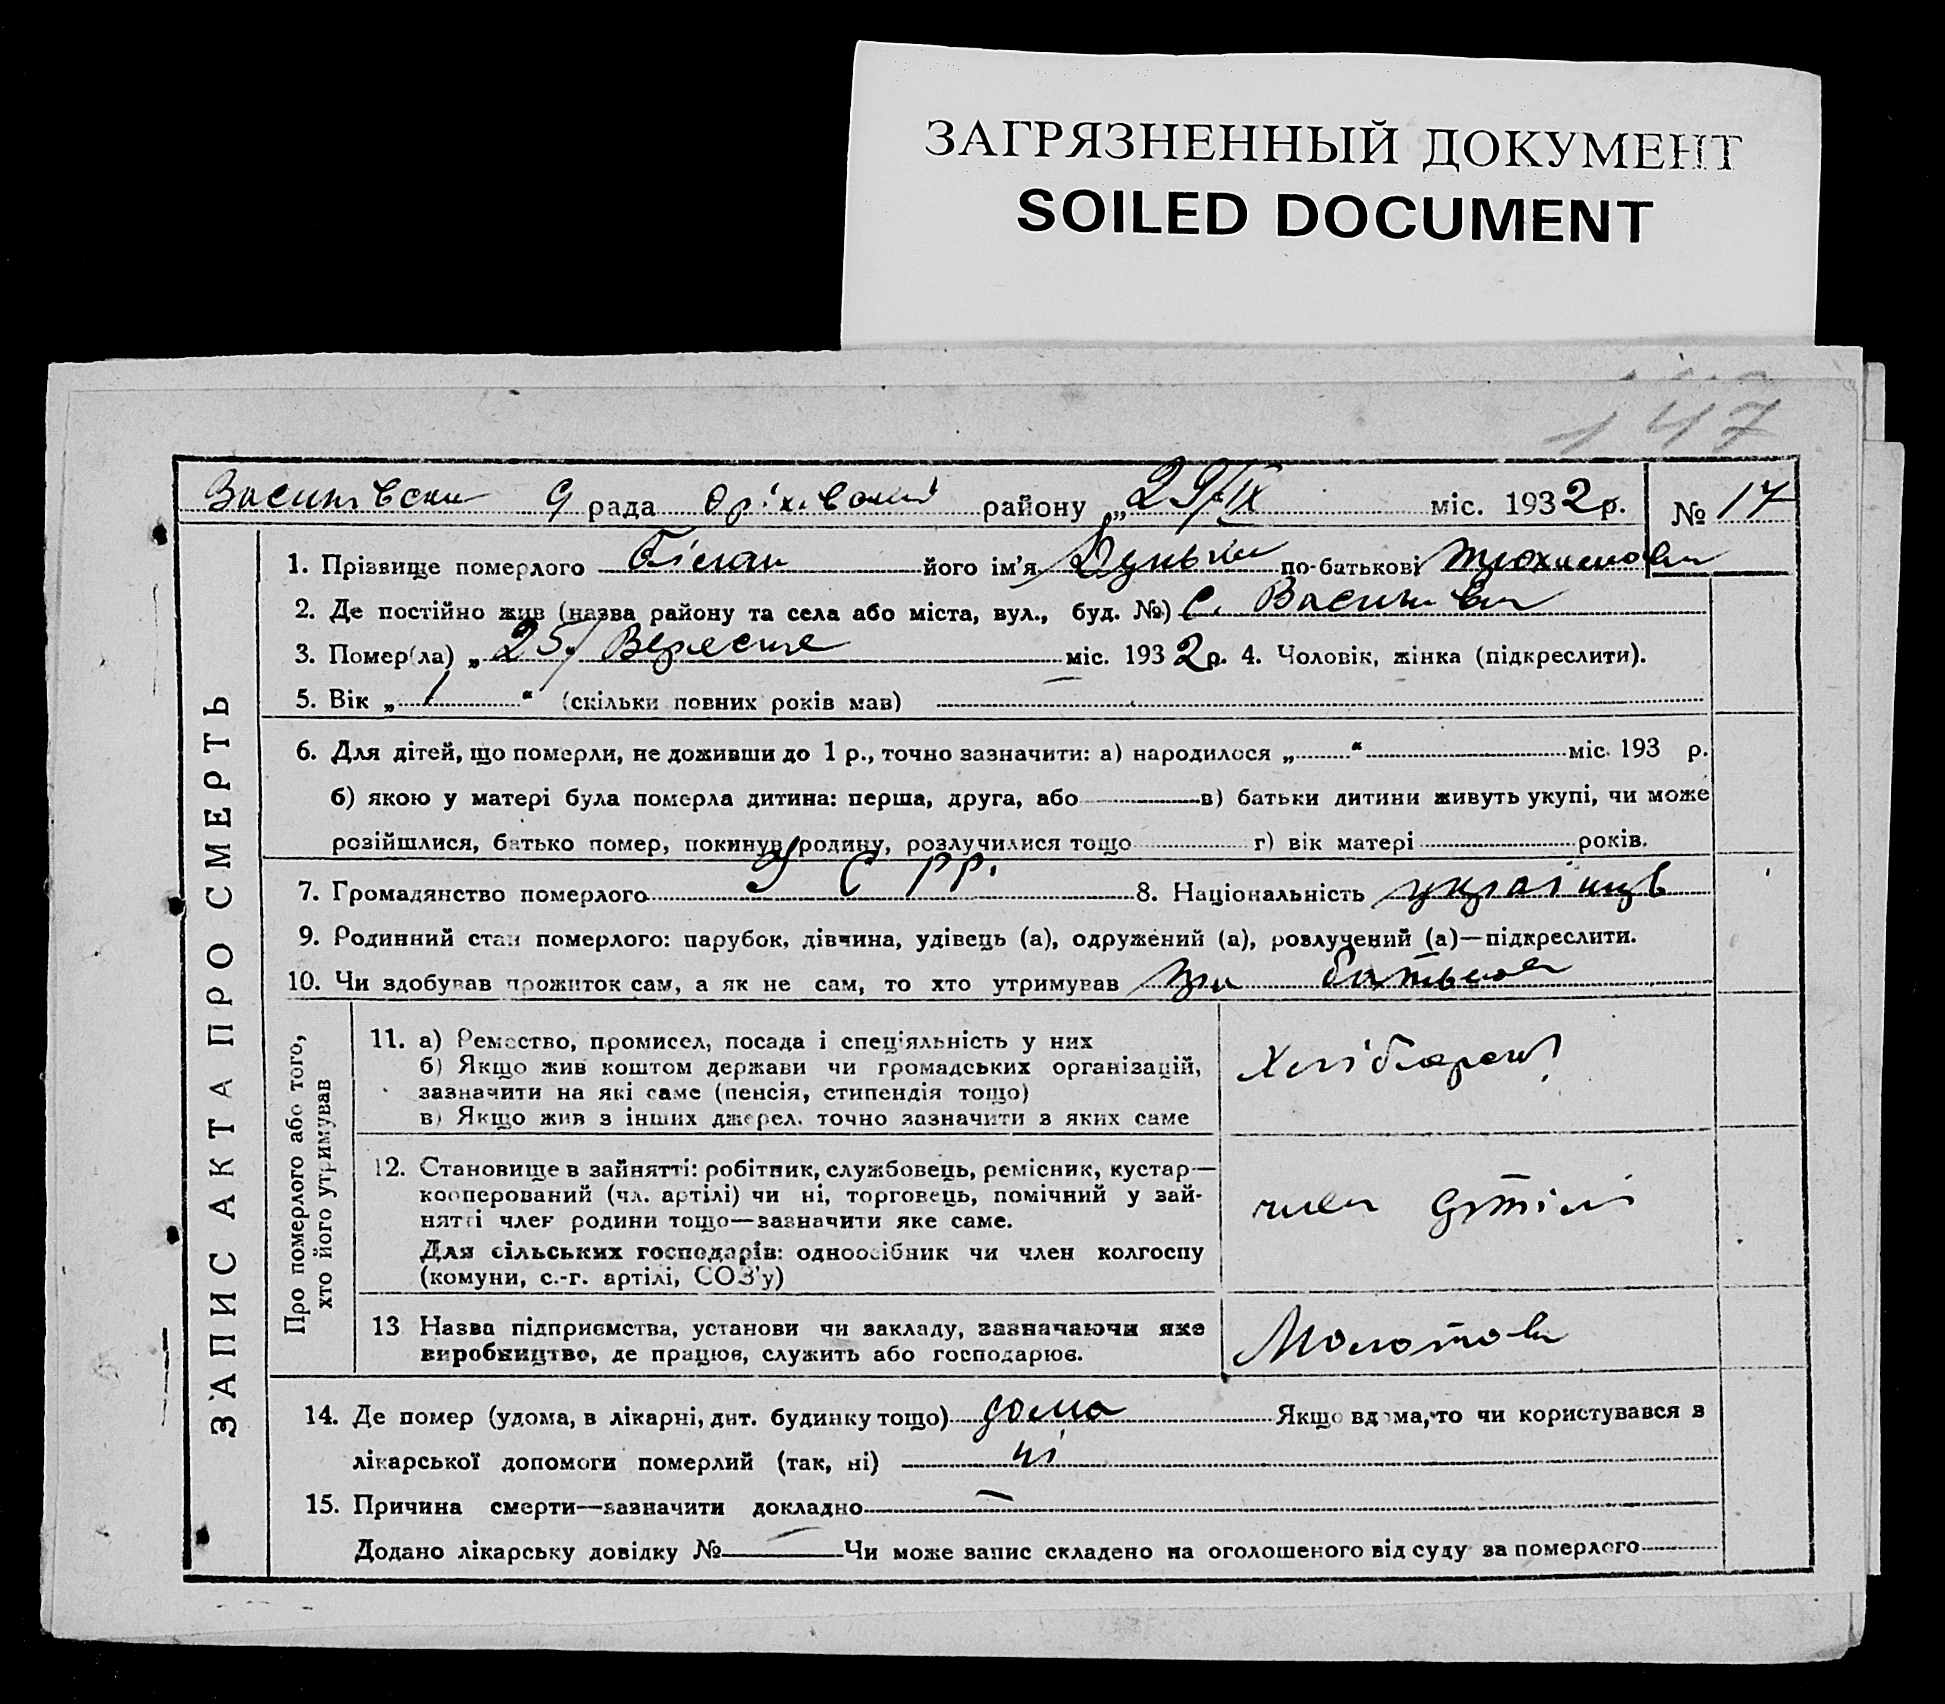 ЗАГРЯЗНЕННЫЙ ДОКУМЕНТ
SOILED DOCUMENT
147
рада района „29/IX міс. 1932 р. № 17
1. Прізвище померлого його ім'я по-батькові
2. Де постійно жив (назва району та села або міста, вул., буд. №) с.
3. Помер(ла) „25/ Вересне міс. 1932 р. 4. Чоловік, жінка (підкреслити).
5. Вік „ 1 “ (скільки повних років мав) —
6. Для дітей, що померли, не доживши до 1 р., точно зазначити: а) народилося „ “ міс. 193 р.
б) якою у матері була померла дитина: перша, друга, або в) батьки дитини живуть укупі, чи може
розійшлися, батько помер, покинув родину, розлучилися тощо г) вік матері років.
7. Громадянство померлого У С рр. 8. Національність
9. Родинний стан померлого: парубок, дівчина, удівець (а), одружений (а), розлучений (а)—підкреслити.
10. Чи здобував прожиток сам, а як не сам, то хто утримував
ЗАПИС АКТА ПРО СМЕРТЬ
Про померлого або того,
хто його утримував
11. а) Ремество, промисел, посада і спеціяльність у них
б) Якщо жив коштом держави чи громадських організацій,
зазначити на які саме (пенсія, стипендія тощо)
в) Якщо жив з інших джерел, точно зазначити з яких саме
Хлібороб
12. Становище в зайнятті: робітник, службовець, ремісник, кустар—
кооперований (чл. артілі) чи ні, торговець, помічний у зай-
нятті член родини тощо—зазначити яке саме.
Для сільських господарів: одноосібник чи член колгоспу
(комуни, с.-г. артілі, СОЗ'у)
член артілі
13 Назва підприємства, установи чи закладу, зазначаючи яке
виробництво, де працює, служить або господарює.
Молотова
14. Де помер (удома, в лікарні, дит. будинку тощо) дома Якщо вдома, то чи користувався в
лікарської допомоги померлий (так, ні) ні
15. Причина смерти—зазначити докладно —
Додано лікарську довідку № — Чи може запис складено на оголошеного від суду за померлого